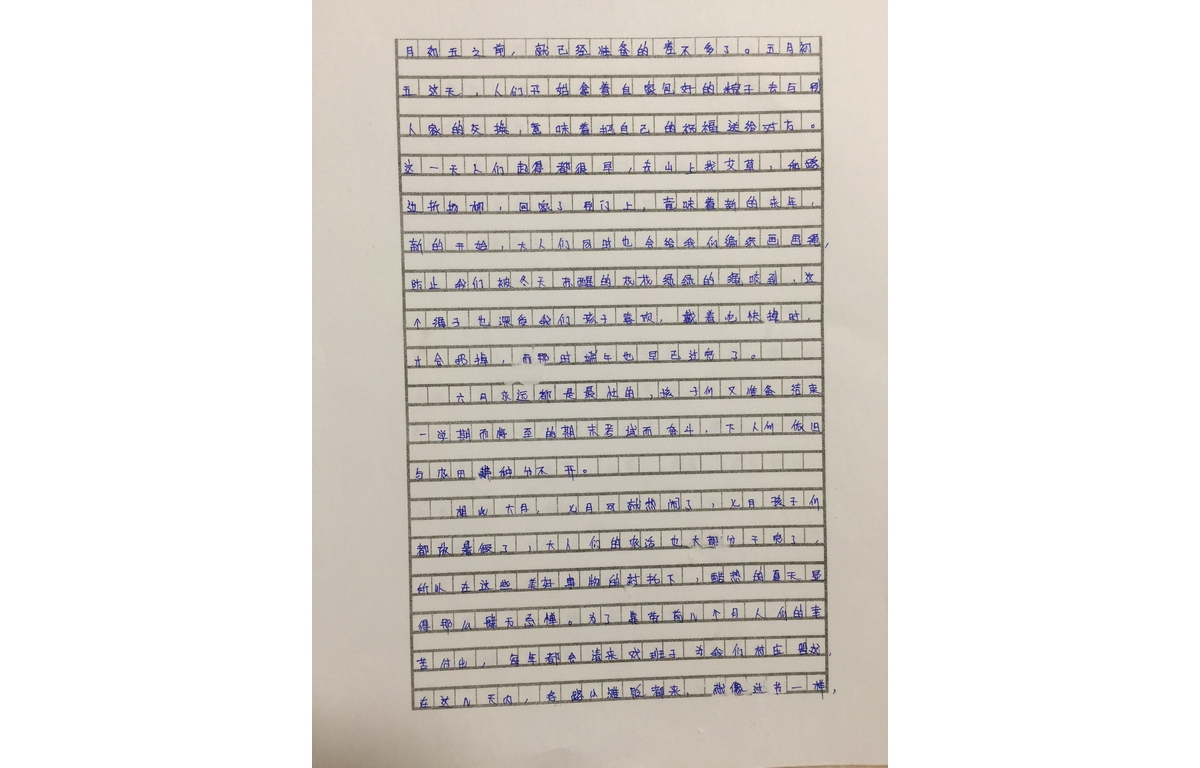 月初五之前，就已经准备的差不多了。五月初
五这天，人们开始拿着自家包好的粽子去与别
人家的交换，意味着把自己的祝福送给对方。
这一天人们起得都很早，去山上找艾草，和路
边折杨柳，回家了别门上，意味着新的来年，
新的开始，大人们同时也会给我们编织画田绳，
防止我们被冬天苏醒的花花绿绿的绳咬到，这
个绳子也深受我们孩子喜欢，戴着也快掉时，
才会扔掉，而那时端午也早已过完了。
六月永远都是最忙的，孩子们又准备结束
一学期而将至的期末考试而奋斗，下人们依旧
与农田耕种分不开。
相比六月，七月可就热闹了，七月孩子们
都放暑假了，大人们的农活也大部分干完了，
所以在这些美好事物的衬托下，酷热的夏天显
得那么肆无忌惮。为了靠劳前几个月人们的辛
苦付出，每年都会请来戏班子为我们村庄唱戏，
在这几天内，各路小滩贩都来，就像过节一样，